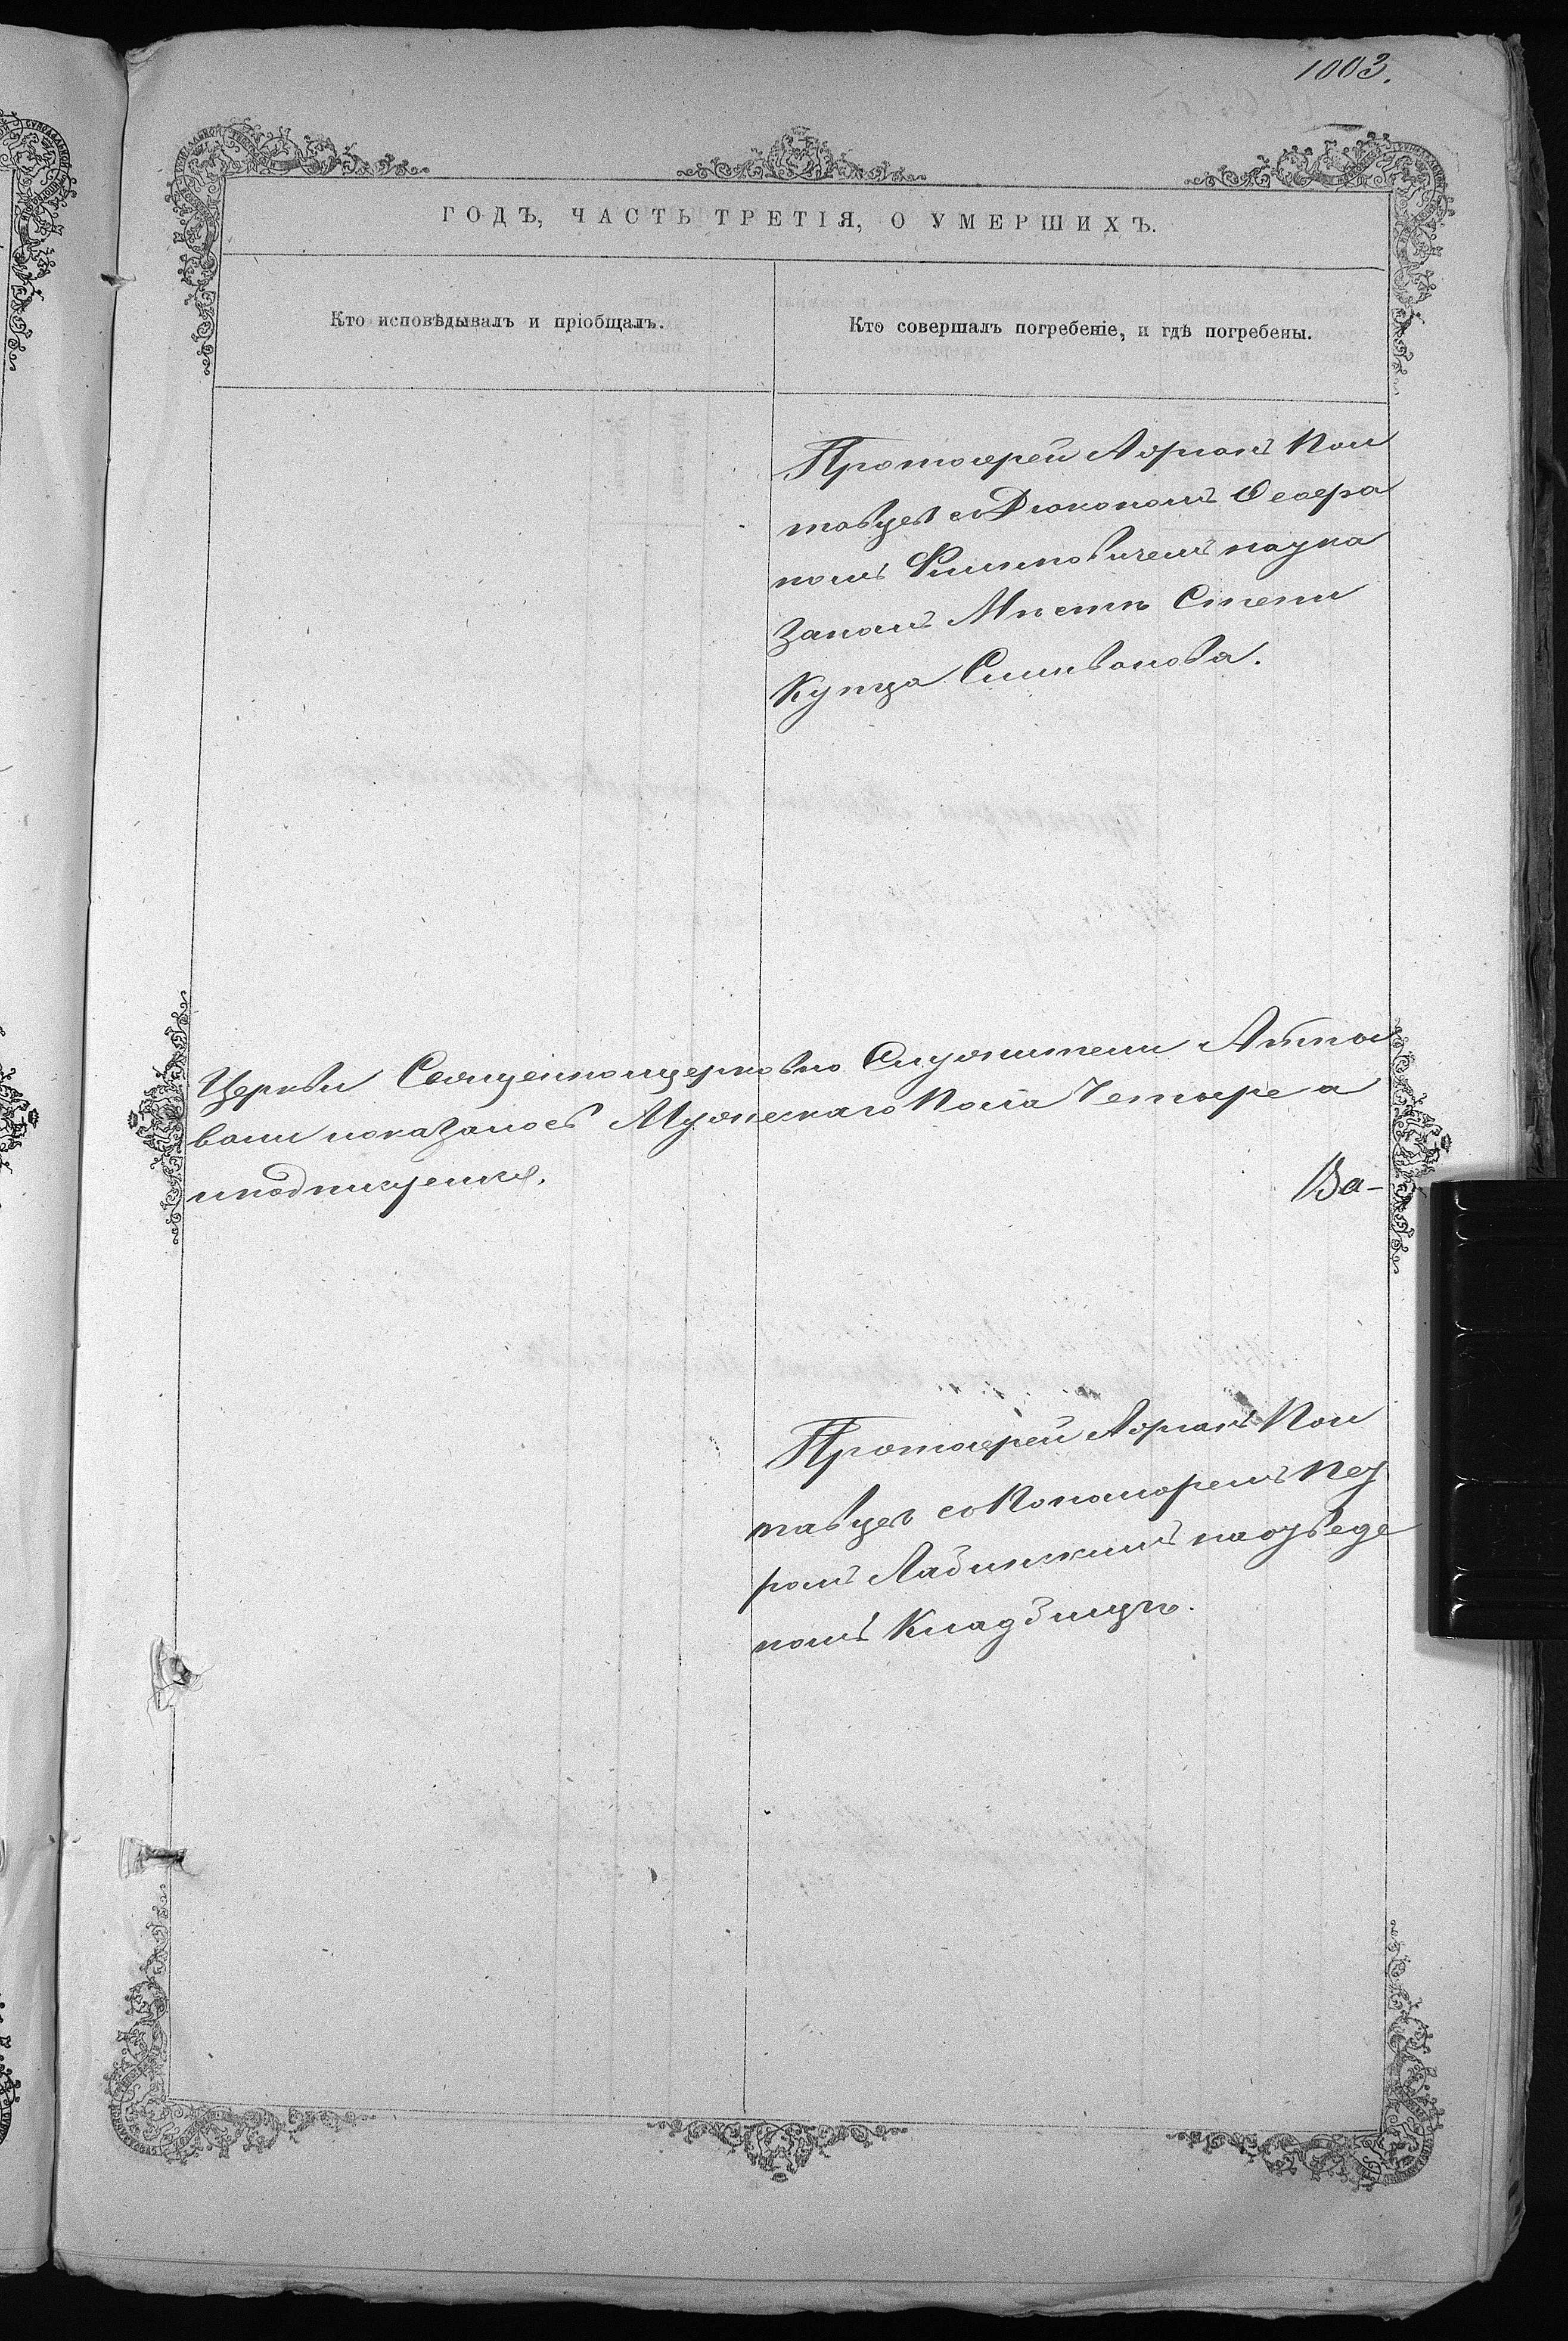 1003.
ГОДЪ, ЧАСТЬ ТРЕТІЯ, О УМЕРШИХЪ.
Кто исповѣдывалъ и пріобщалъ.
Кто совершалъ погребеніе, и гдѣ погребены.
Протоіерей Адріанъ Пол
тавцевъ съ Діакономъ
номъ Филиповичемъ на ука
занамъ Мѣстѣ Степи
Купца Селиванова.
Церкви Священноцерковно Служители
вали показалось Мужескаго Пола Четыре а
и подпишемся.
Ва-
Протоіерей Адріанъ Пол
тавцевъ со Пономоремъ Пет
ромъ Лабинскимъ на отведе
номъ Кладбищѣ.